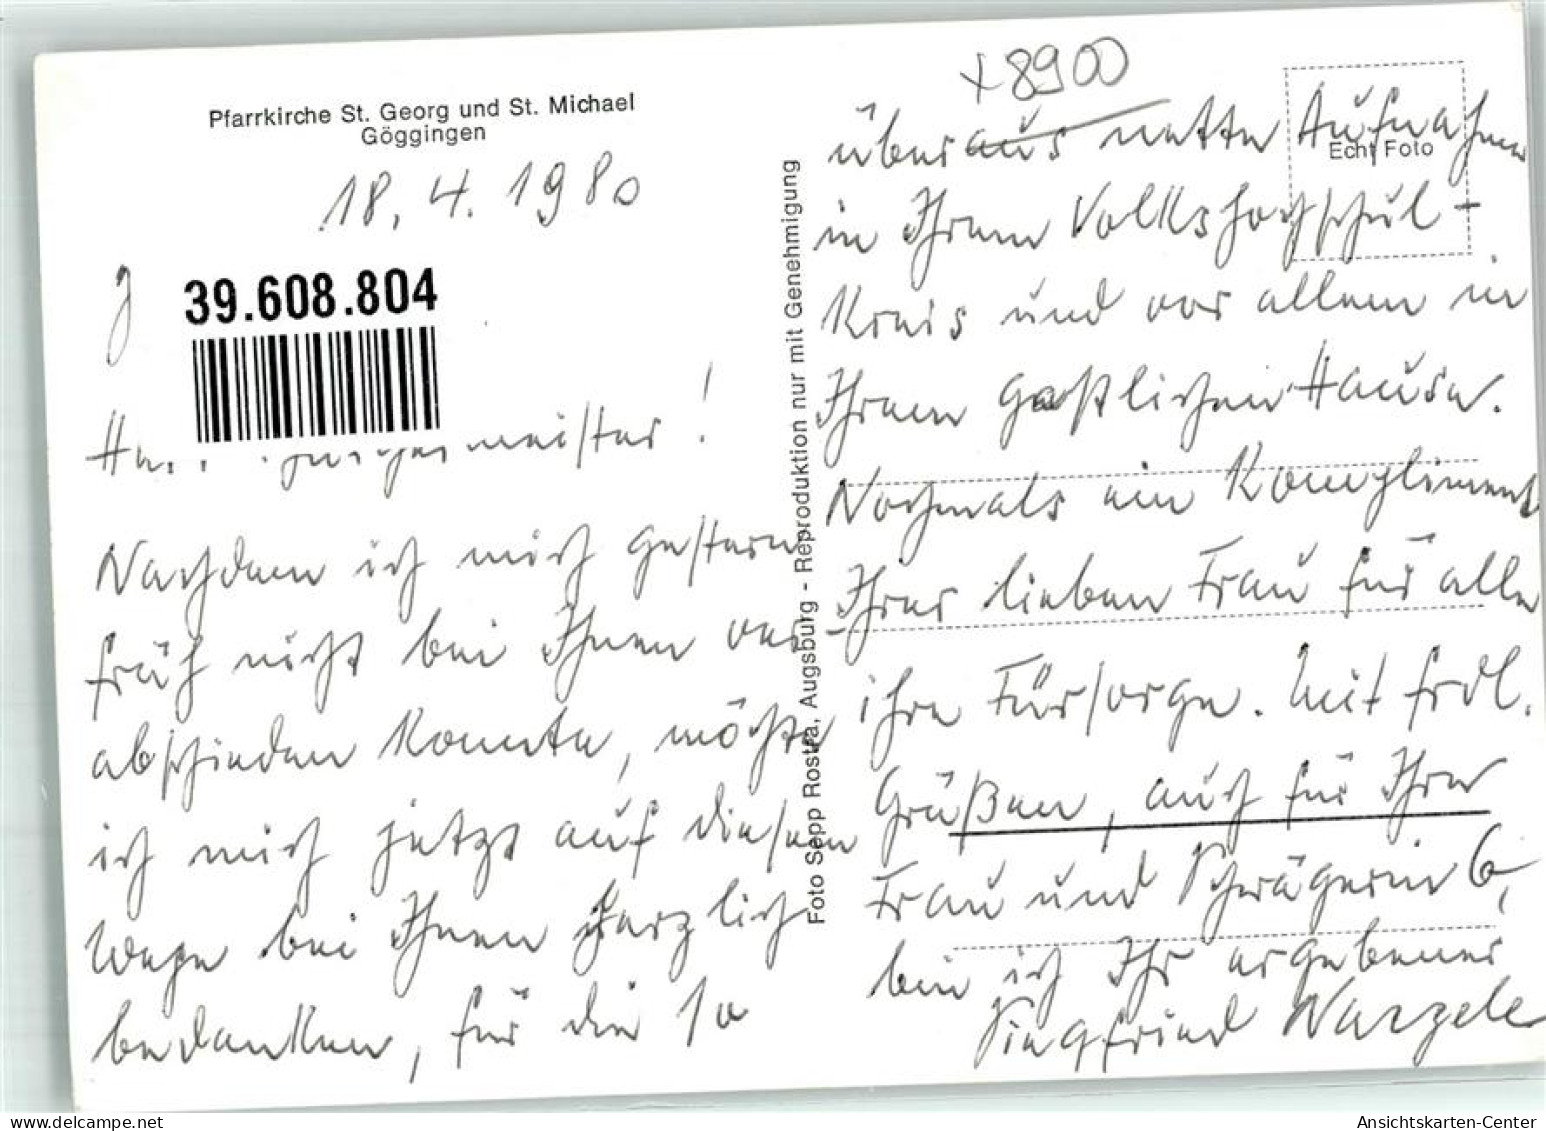 Pfarrkirche St. Georg und St. Michael
Göggingen
18. 4. 1980
39.608.804
meister!
Nachdem ich mich gestern
früh nicht bei Ihnen ver-
abschieden konnte, möchte
ich mich jetzt auf diesem
Wege bei Ihnen herzlich
bedanken, für die so
Foto Sepp Rostra, Augsburg - Reproduktion nur mit Genehmigung
+8900
Echt Foto
überaus nette Aufnahme
in Ihrem Volkshochschul-
Kreis und vor allem in
Ihrem gastlichen Hause.
Nochmals ein Kompliment
Ihrer lieben Frau für alle
ihre Fürsorge. Mit frdl.
Grüßen, auch für Ihre
Frau und Schwägerin
bin ich Ihr ergebener
Siegfried
Ansichtskarten-Center